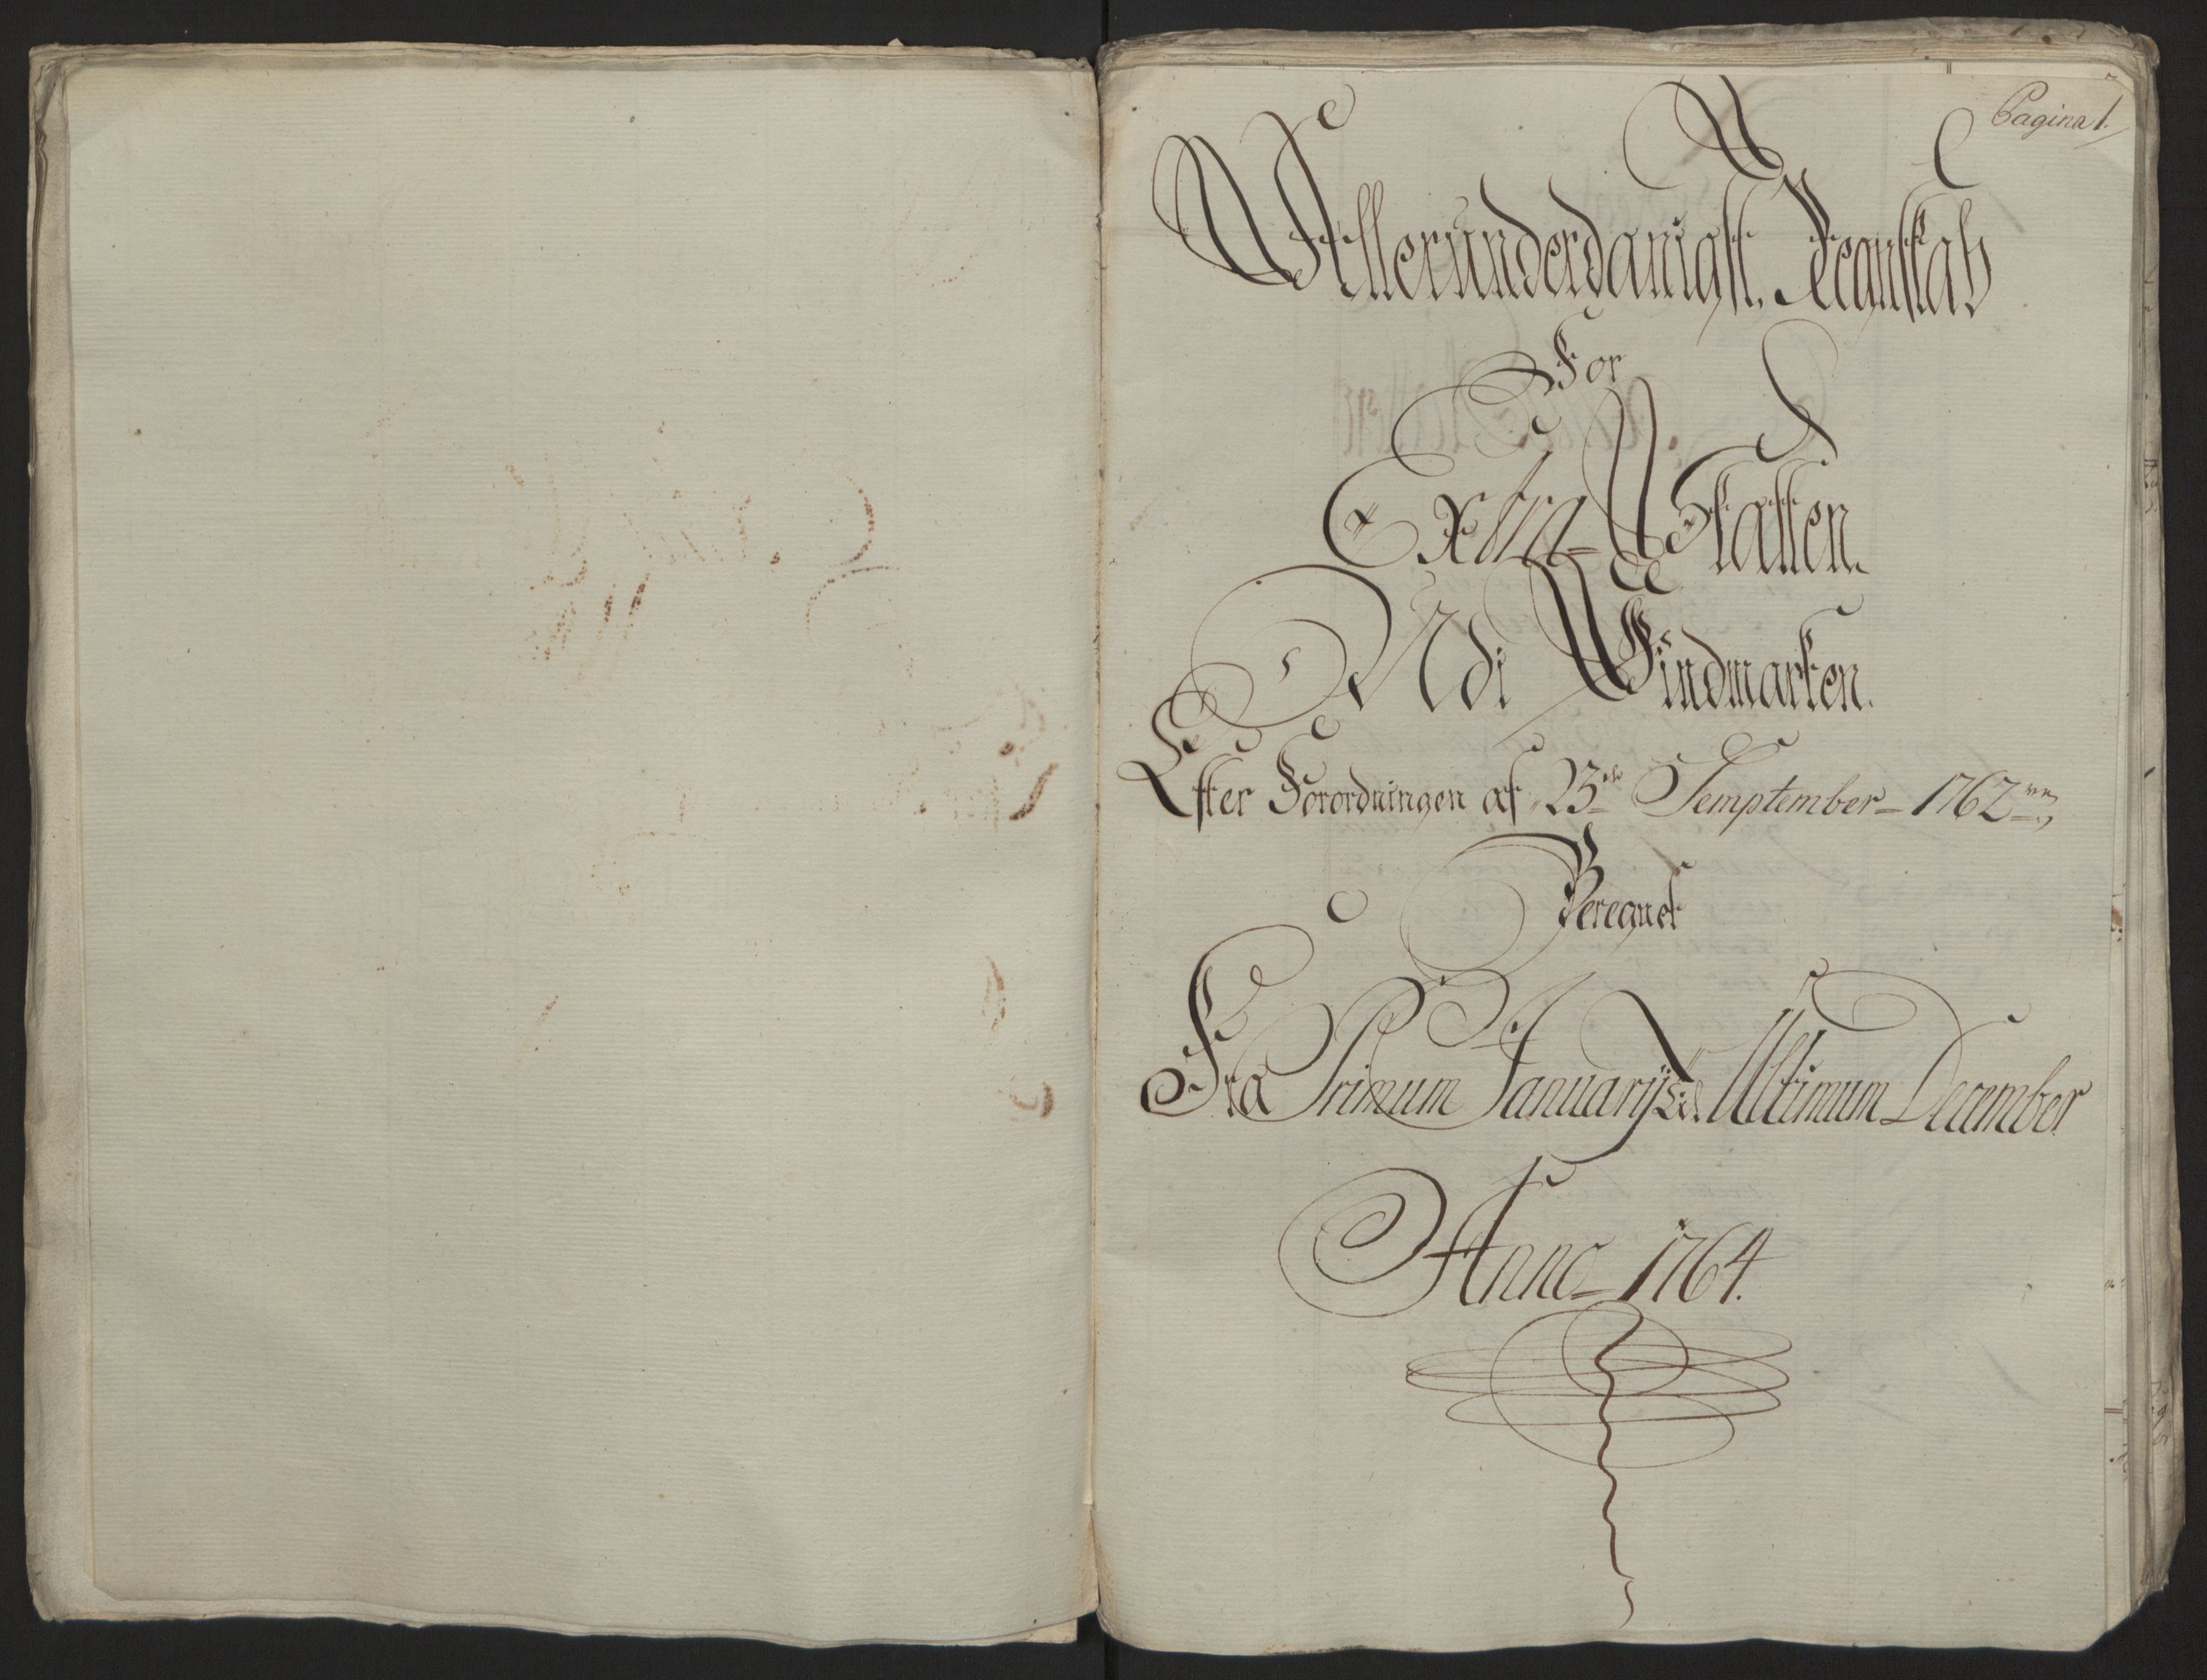 Pagina 1.
Allerunderdanigst. Regnskab
For
Extra-Skatten.
Udi Findmarken.
Efter Forordningen af 23de Semptember 1762
Beregnet
Fra Primum Januarij til Ultimum December
Anno 1764.